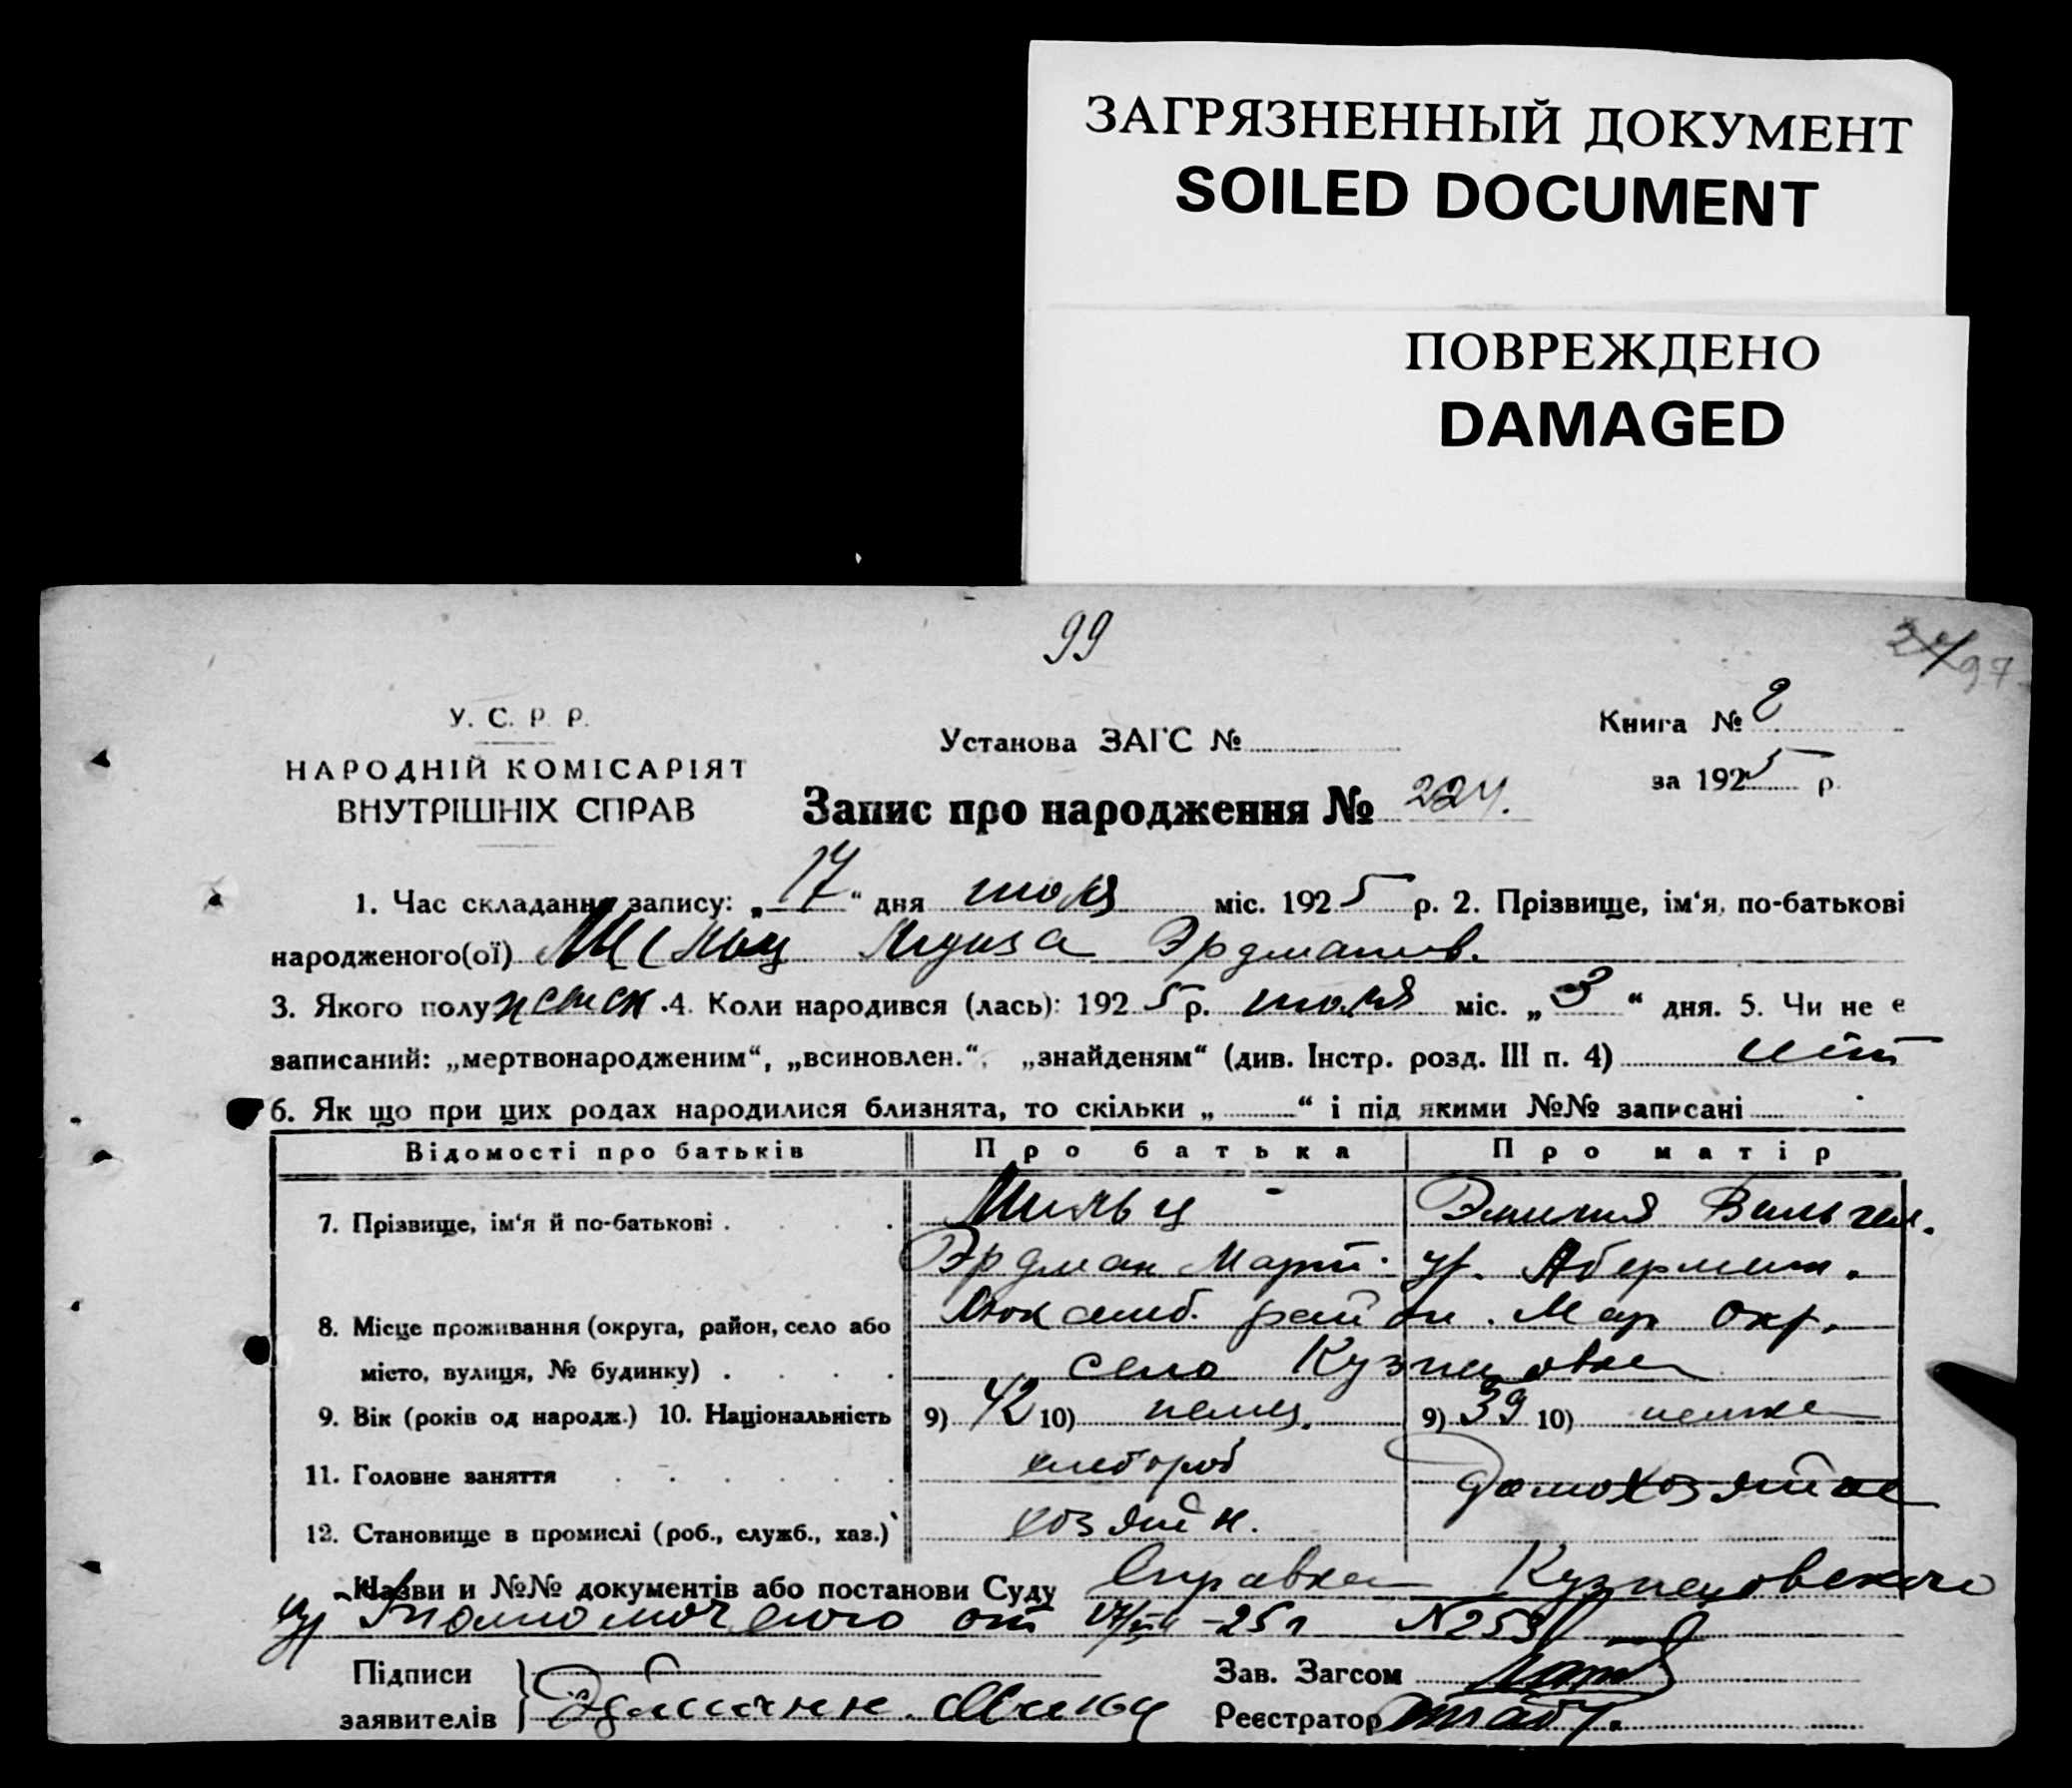 ЗАГРЯЗНЕННЫЙ ДОКУМЕНТ
SOILED DOCUMENT
ПОВРЕЖДЕНО
DAMAGED
99
97
У. С. Р. Р.
НАРОДНІЙ КОМІСАРІЯТ
ВНУТРІШНІХ СПРАВ
Установа ЗАГС №
Книга № 2
за 1925 р.
Запис про народження № 224.
1. Час складання запису: „17“ дня июля міс. 1925 р. 2. Прізвище, ім'я, по-батькові
народженого(ої) Мильц Лидиа Эрдманов.
3. Якого полу женск. 4. Коли народився (лась): 1925 р. июля міс. „3“ дня. 5. Чи не є
записаний: „мертвонародженим“, „всиновлен.“, „знайденям“ (див. Інстр. розд. III п. 4) нет
6. Як що при цих родах народилися близнята, то скільки „ “ і під якими №№ записані
Відомості про батьків Про батька Про матір
7. Прізвище, ім'я й по-батькові . Мильц Эмилия Вильгел.
Эрдман Март. ур.
8. Місце проживання (округа, район, село або Люксемб. район. Мар окр.
місто, вулиця, № будинку) . село Кузнецовка
9. Вік (років од народж.) 10. Національність 9) 42 10) немец. 9) 39 10) немка
11. Головне заняття хлебороб домохозяйка
12. Становище в промислі (роб., служб., хаз.) хозяин.
Назви и №№ документів або постанови Суду Справка Кузнецовского
Уполномоченого от 17/VII-25 г №253
Підписи
заявителів Эрдманн. Мильц
Зав. Загсом
Реєстратор